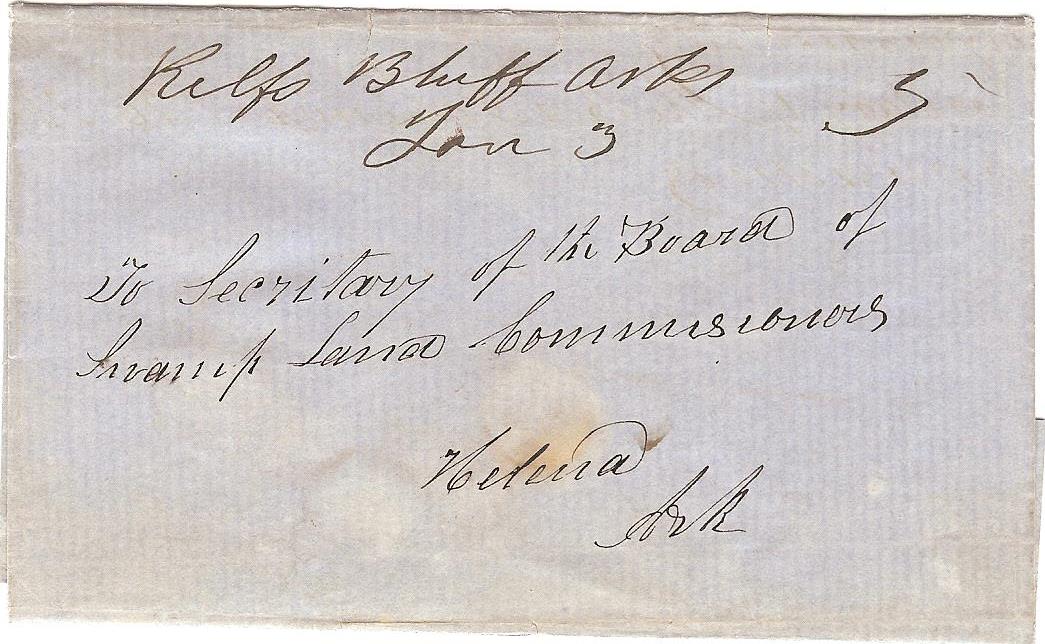 Relfs Bluff Arks 5
Jan 3
To Secritary of the Board of
Swamp Land Commisionors
Helena
Ark